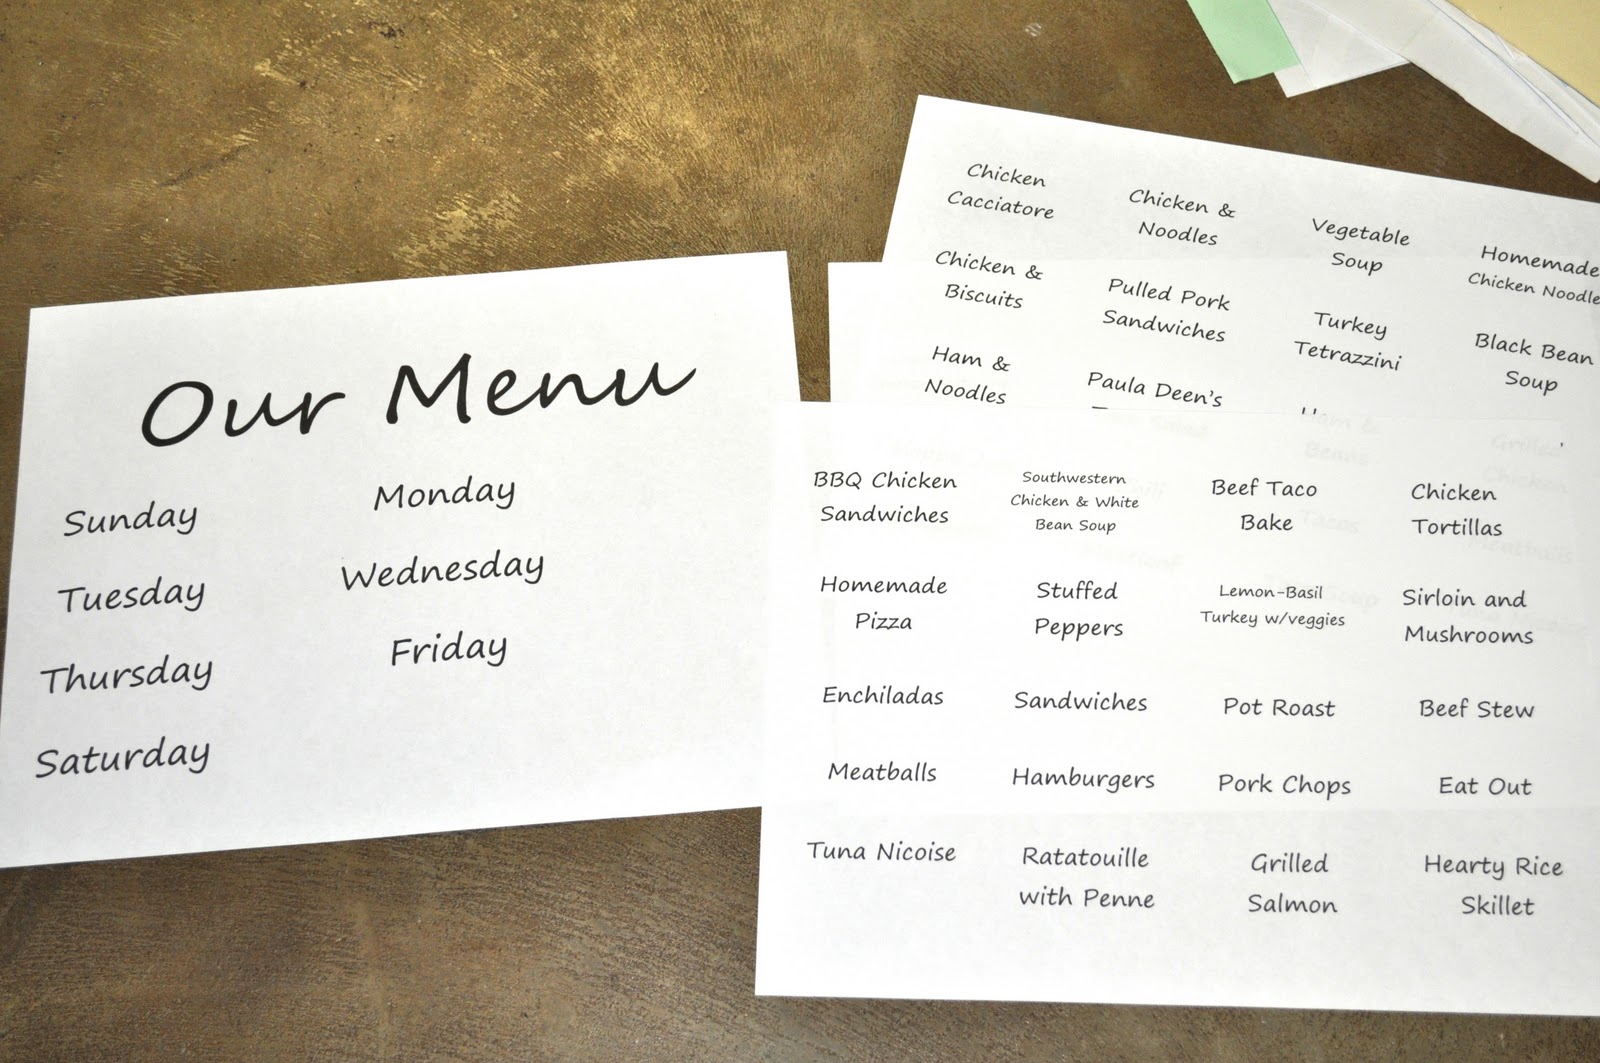 Our Menu
Sunday
Monday
Tuesday
Wednesday
Thursday
Friday
Saturday
Chicken
Cacciatore
Chicken &
Noodles
Vegetable
Soup
Homemade
Chicken Noodle
Chicken &
Biscuits
Pulled Pork
Sandwiches
Turkey
Tetrazzini
Black Bean
Soup
Ham &
Noodles
Paula Deen's
Ham &
Beans
Grilled
Chicken
Tacos
Meatballs
BBQ Chicken
Sandwiches
Southwestern
Chicken & White
Bean Soup
Beef Taco
Bake
Chicken
Tortillas
Homemade
Pizza
Stuffed
Peppers
Lemon-Basil
Turkey w/veggies
Sirloin and
Mushrooms
Enchiladas
Sandwiches
Pot Roast
Beef Stew
Meatballs
Hamburgers
Pork Chops
Eat Out
Tuna Nicoise
Ratatouille
with Penne
Grilled
Salmon
Hearty Rice
Skillet